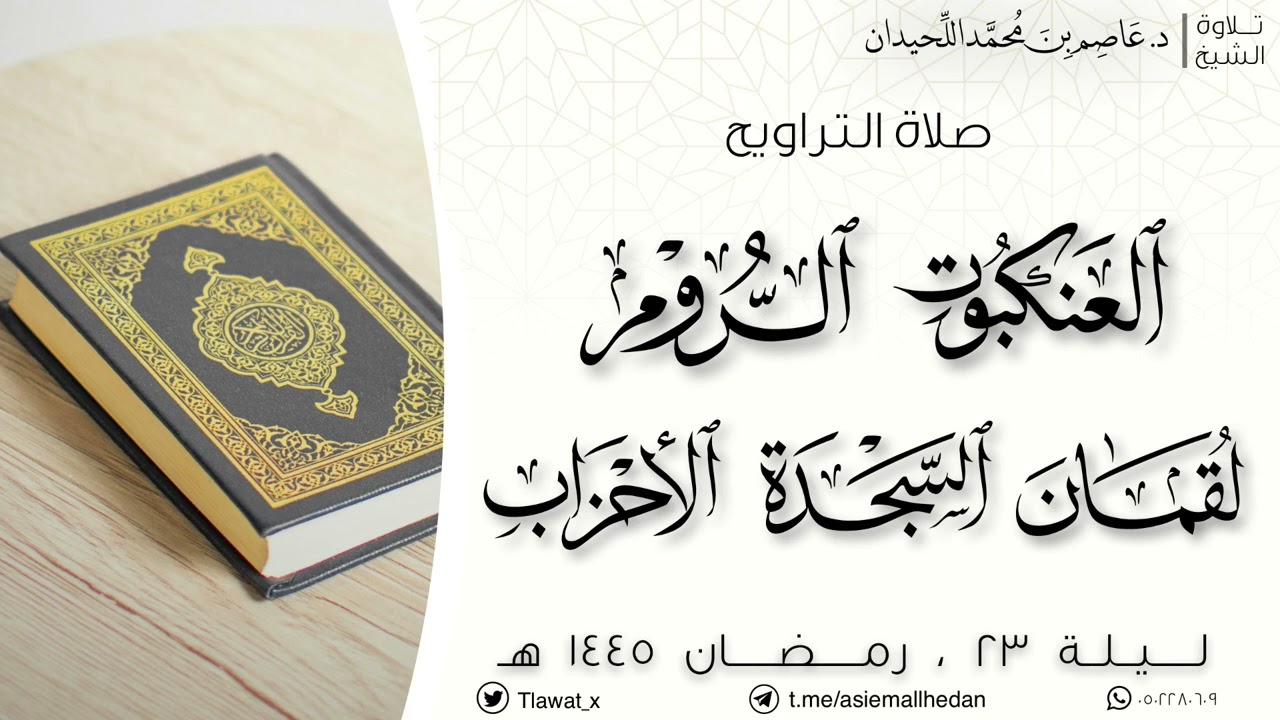 تلاوة الشيخ
د. عَاصِم بِنَ مُحمَّد اللِّحيدان
صلاة التراويح
ٱلعَنكبُوت ٱلرُّوْم
لُقمَان ٱلسَّجْدَة ٱلأحْزَاب
ليلة ٢٣ ، رمضان ١٤٤٥ هـ
Tlawat_x t.me/asiemallhedan ٠٥٠٢٢٨٠٦٠٩